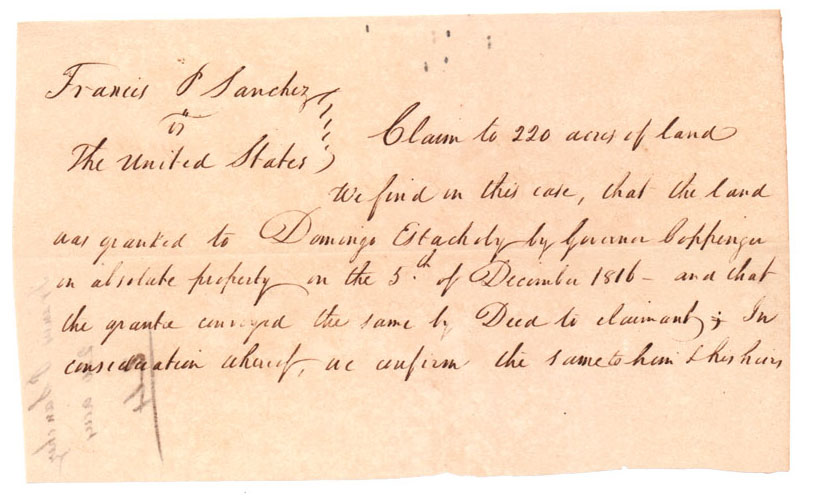 Francis P Sanchez
vs
The United States
Claim to 220 acres of land
We find in this case, that the land
was granted to Domingo Estacholy by Governor Coppinger
in absolute property on the 5th of December 1816 - and that
the grantee conveyed the same by Deed to claimant; In
consideration whereof, we confirm the same to him & his heirs